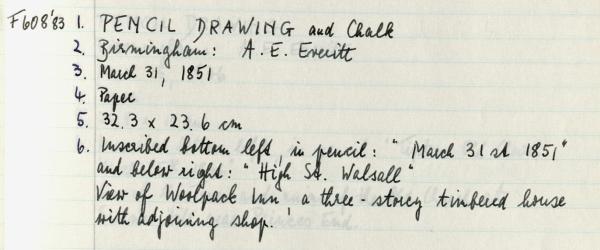 F608'83 1. PENCIL DRAWING and Chalk
2. Birmingham: A. E. Everitt
3. March 31, 1851
4. Paper
5. 32.3 x 23.6 cm
6. Inscribed bottom left, in pencil: "March 31 st 1851"
and below right: "High St. Walsall"
View of Woolpack Inn, a three-storey timbered house
with adjoining shop.